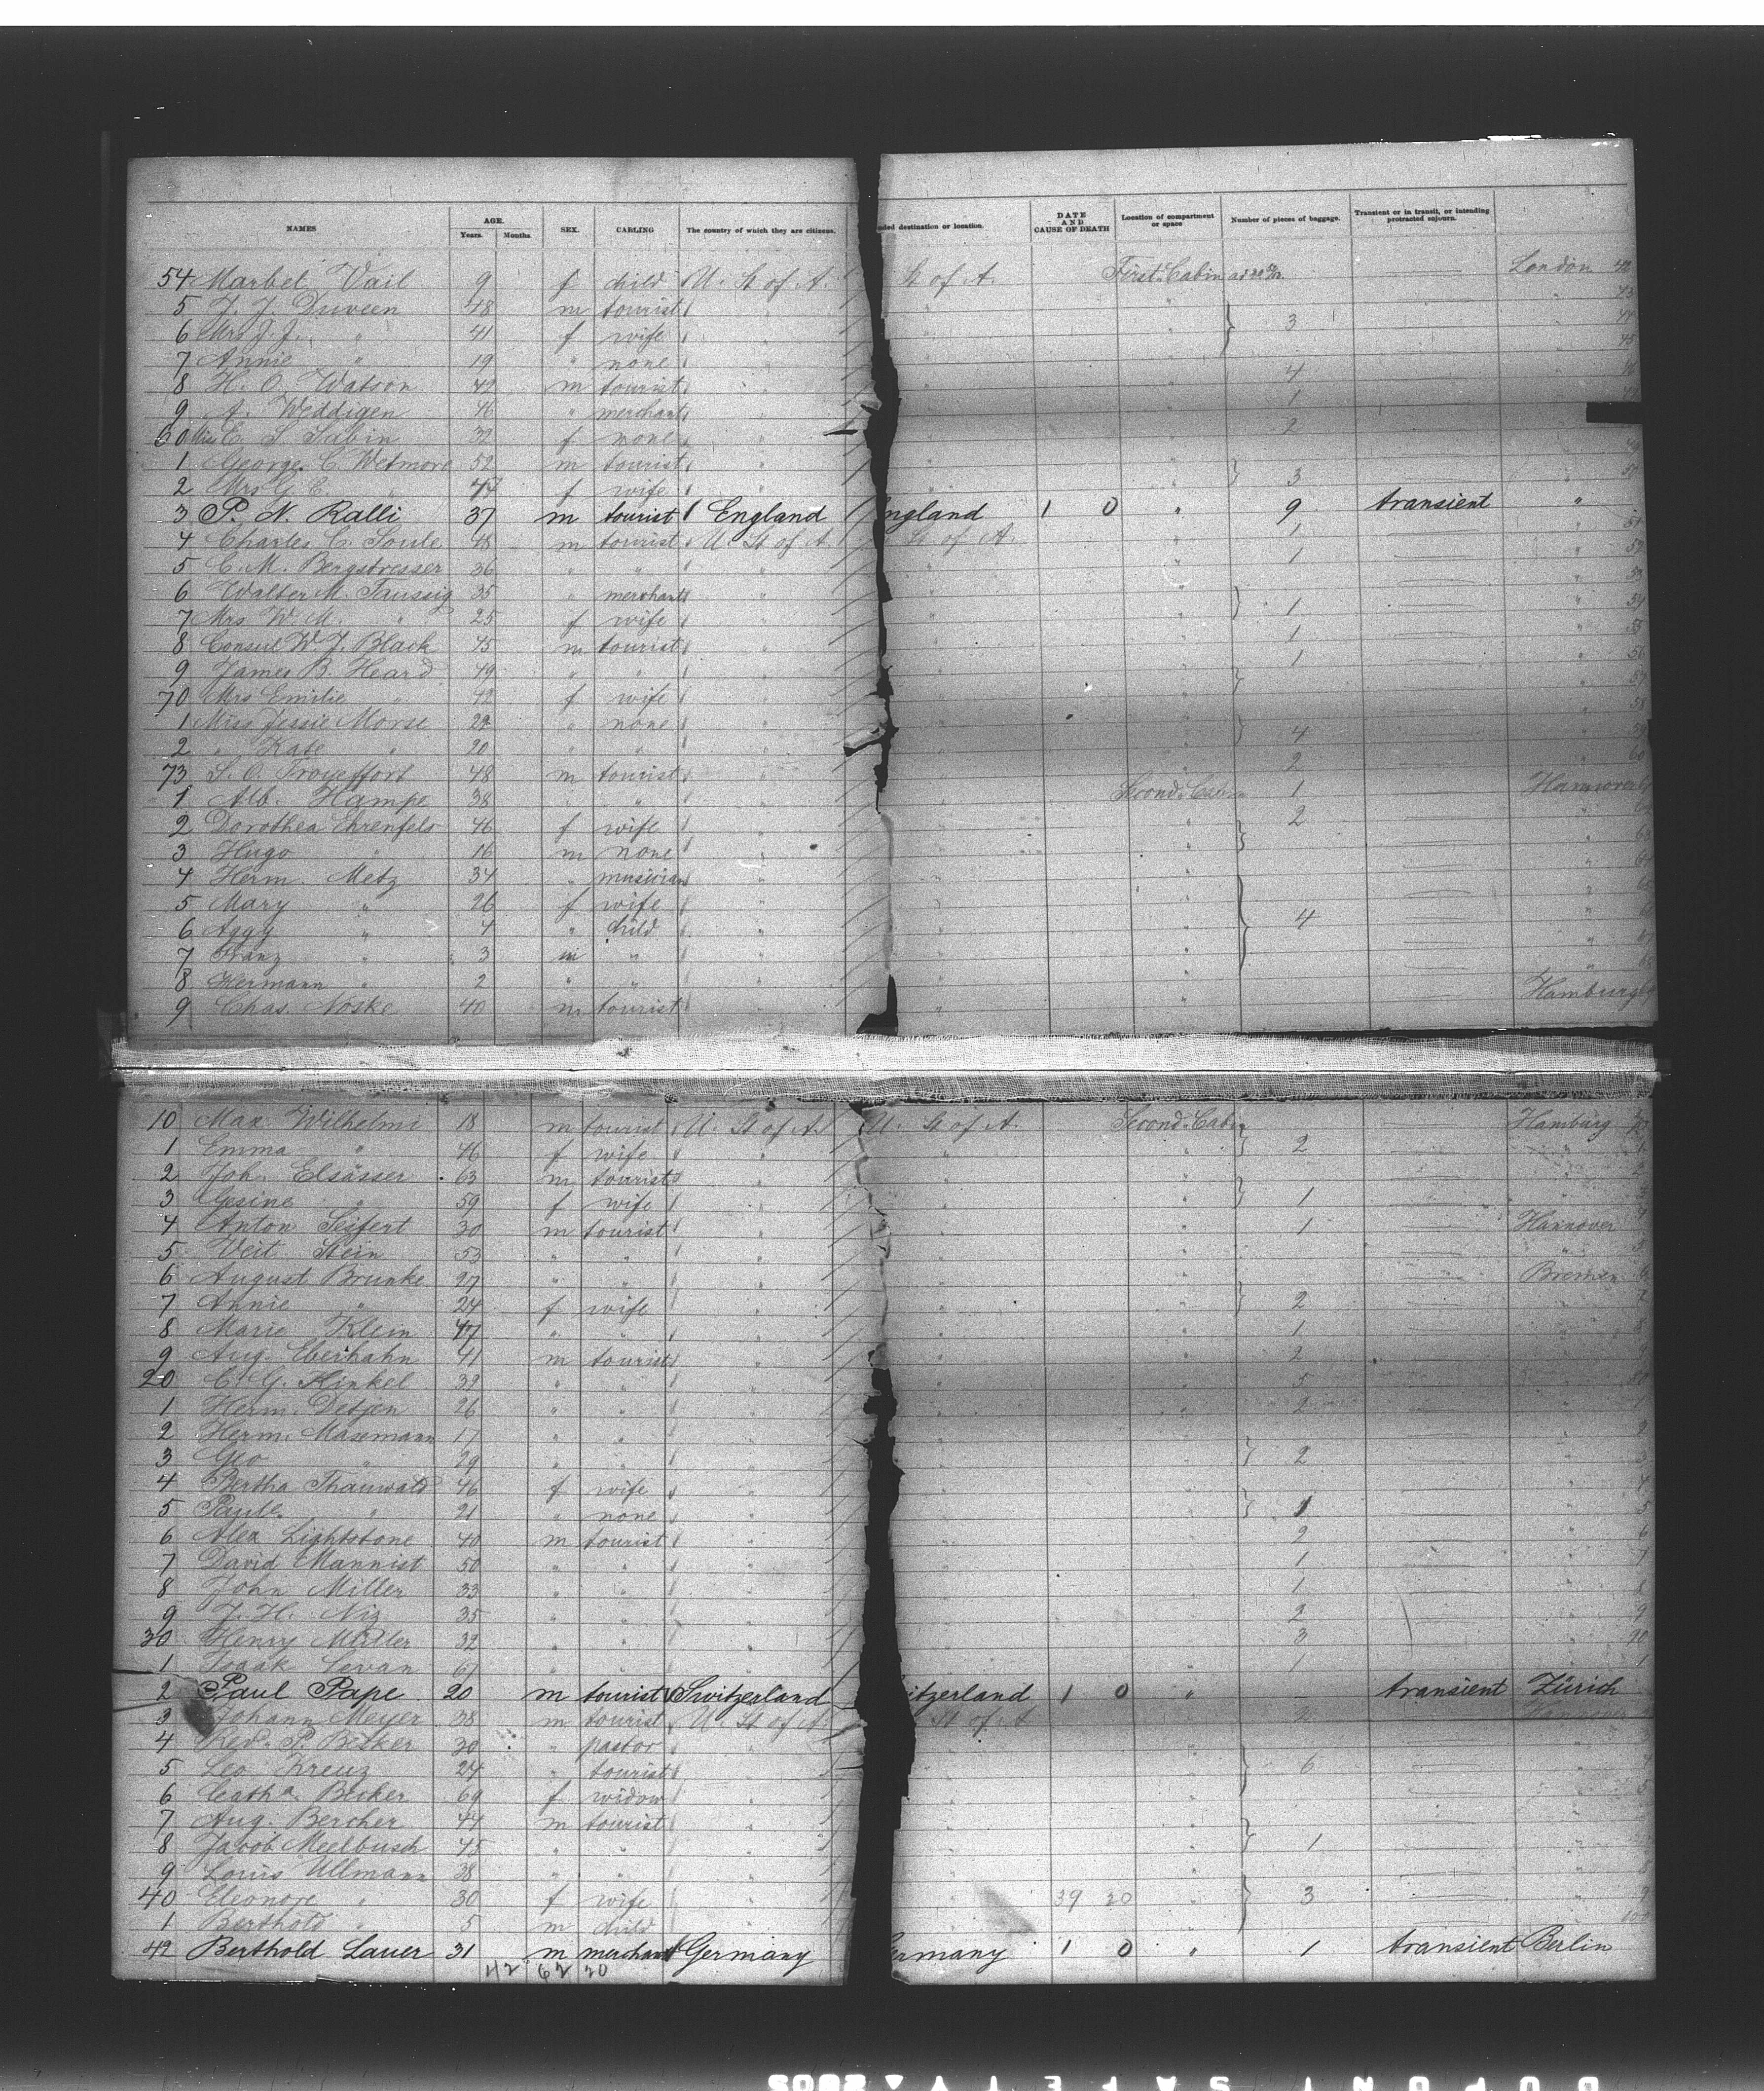 NAMES AGE. Years. Months. SEX. CARLING The country of which they are citizens. nded destination or location. DATE AND CAUSE OF DEATH Location of compartment or space Number of pieces of baggage. Transient or in transit, or intending protracted sojourn.
54 Marbel Vail 9 f child U. St of A. St of A. First Cabin London 42
5 J. J. Duveen 48 m tourist 43
6 Mrs J. J. " 41 f wife " 3 44
7 Annie " 19 " none 45
8 H. O. Watson 42 m tourist " 4 46
9 A. Weddigen 46 " merchant " 1
60 Miss E. S. Sabin 32 f none " 2
1 George C. Wetmore 52 m tourist "
2 Mrs G. C. " 47 f wife " 3 50
3 P. N. Ralli 37 m tourist England ngland 1 0 " 9 transient "
4 Charles C. Soule 48 m tourist U. St of A. St of A. 1 51
5 C. M. Bergstresser 36 " " " 1 52
6 Walter M. Taussig 35 " merchant " 53
7 Mrs W. M. " 25 f wife " 1 54
8 Consul W. J. Black 45 m tourist " 1 55
9 James B. Heard 49 " " " 1 56
70 Mrs Emilie " 42 f wife " 57
1 Miss Jessie Morse 24 " none " 58
2 " Kate " 20 " " " 4 59
73 S. O. Troueffort 48 m tourist " 2 60
1 Alb. Hampe 38 " " " Second Cabin 1 Hannover
2 Dorothea Ehrenfels 46 f wife " 2
3 Hugo " 16 m none "
4 Herm. Metz 34 " musician "
5 Mary " 26 f wife "
6 Aggy " 4 " child " 4
7 Franz " 3 m " "
8 Hermann " 2 " " "
9 Chas. Noske 40 m tourist " Hamburg
10 Max Wilhelmi 18 m tourist U. St of A. U. St of A. Second Cabin Hamburg 70
1 Emma " 46 f wife " 2 1
2 Joh. Elsässer 63 m tourist " 2
3 Gesine " 59 f wife " 1 3
4 Anton Seifert 30 m tourist " 1 Hannover 4
5 Veit Stein 53 " " " " 5
6 August Brunke 27 " " " Bremen 6
7 Annie " 24 f wife " 2 " 7
8 Marie Klein 47 " " " 1 " 8
9 Aug. Eberhahn 41 m tourist " 2 " 9
20 C. G. Kinkel 39 " " " 5 " 80
1 Herm. Detjen 26 " " " 2 " 1
2 Herm. Masemann 17 " " " " 2
3 Geo " 29 " " " 2 " 3
4 Bertha Thauwald 46 f wife " " 4
5 Paule " 21 " none " 1 " 5
6 Alex Lightstone 40 m tourist " 2 " 6
7 David Mannist 50 " " " 1 " 7
8 John Miller 33 " " " 1 " 8
9 J. H. Niz 35 " " " 2 " 9
30 Henry Müller 32 " " " 3 " 90
1 Isaak Levan 67 " " " 1 " 1
2 Paul Pape 20 m tourist Switzerland itzerland 1 0 " – transient Zürich
3 Johann Meyer 38 m tourist U. St of A. St of A 2 Hannover
4 Red. P. Becker 30 " pastor "
5 Leo Kreuz 24 " tourist " 6 4
6 Cath a Becker 69 f widow " 5
7 Aug. Bercher 44 m tourist "
8 Jacob Meelbusch 45 " " " 1
9 Louis Ullmann 38 " " " 8
40 Eleonore " 30 f wife " 39 20 " 3 9
1 Berthold " 5 m child " 100
42 Berthold Lauer 31 m merchant Germany ermany 1 0 " 1 transient Berlin
42 62 20